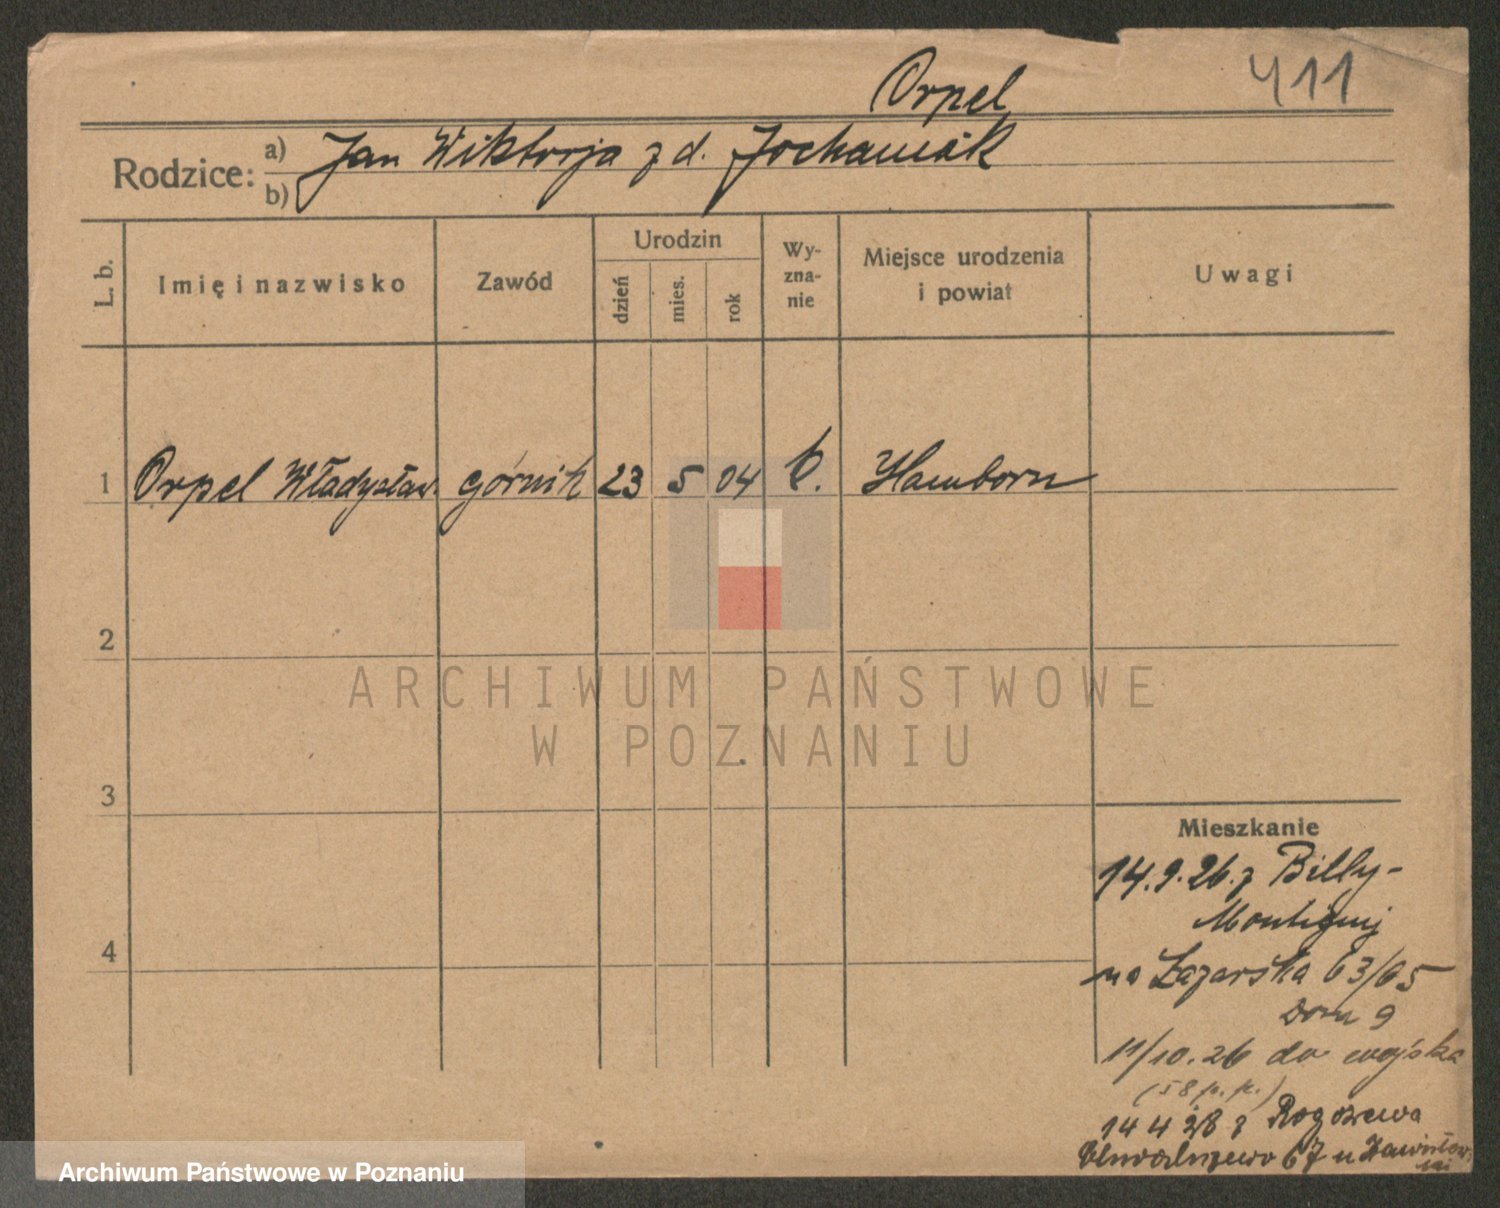 Orpel 411
Rodzice: a) Jan Wiktorja z d. Jochaniak
b)
L. b. Imię i nazwisko Zawód Urodzin dzień mies. rok Wy-zna-nie Miejsce urodzenia i powiat Uwagi
1 Orpel Władysław górnik 23 5 04 k. Hamborn
2
ARCHIWUM PAŃSTWOWE
W POZNANIU
3
Mieszkanie
14.9.26. z Billy-
Montigny
4
na Łazarska 63/65
Dom 9
11/10.26 do wojska
(58 p.p.)
14 4 28 z Rogoźewa
67 u
Archiwum Państwowe w Poznaniu